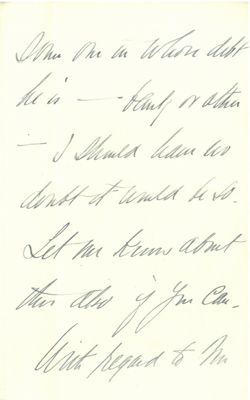 Some one in whose debt
he is — or other
— I should have no
doubt it would be so.
Let me know about
this also if you can.
With regard to